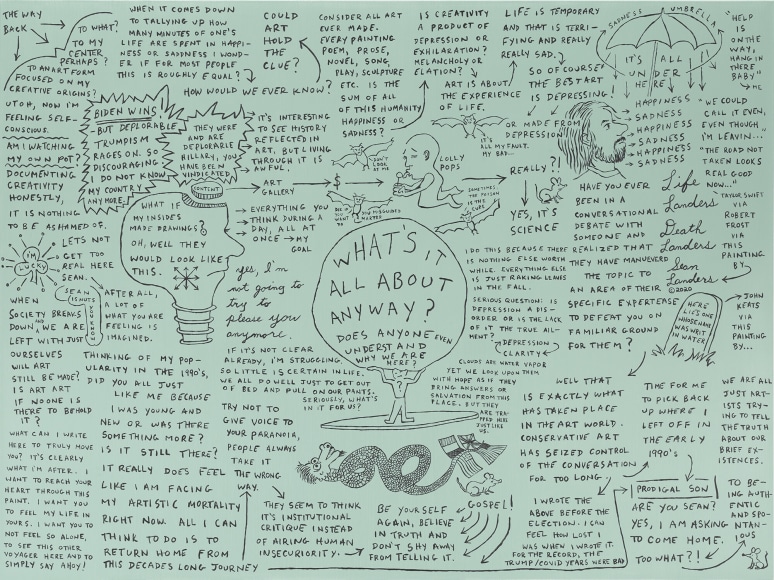 THE WAY
BACK
TO WHAT?
TO MY
CENTER
PERHAPS?
TO AN ART FORM
FOCUSED ON MY
CREATIVE ORIGINS?
UT OH, NOW I'M
FEELING SELF-
CONSCIOUS.
AM I WATCHING
MY OWN POT?
DOCUMENTING
CREATIVITY
HONESTLY,
IT IS NOTHING
TO BE ASHAMED OF.
WHEN IT COMES DOWN
TO TALLYING UP HOW
MANY MINUTES OF ONE'S
LIFE ARE SPENT IN HAPPI-
NESS OR SADNESS I WOND-
ER IF FOR MOST PEOPLE
THIS IS ROUGHLY EQUAL?
HOW WOULD WE EVER KNOW?
COULD
ART
HOLD
THE
CLUE?
CONSIDER ALL ART
EVER MADE.
EVERY PAINTING
POEM, PROSE,
NOVEL, SONG,
PLAY, SCULPTURE
ETC. IS THE
SUM OF ALL
OF THIS HUMANITY
HAPPINESS OR
SADNESS?
IS CREATIVITY
A PRODUCT OF
DEPRESSION OR
EXHILARATION?
MELANCHOLY OR
ELATION?
ART IS ABOUT
THE EXPERIENCE
OF LIFE.
LIFE IS TEMPORARY
AND THAT IS TERRI-
FYING AND REALLY
REALLY SAD.
SO OF COURSE
THE BEST ART
IS DEPRESSING!
OR MADE FROM
DEPRESSION
REALLY?!
YES, IT'S
SCIENCE
SADNESS UMBRELLA
IT'S ALL
UNDER
HERE
HAPPINESS
SADNESS
HAPPINESS
SADNESS
HAPPINESS
SADNESS
"HELP
IS
ON THE
WAY,
HANG IN
THERE
BABY"
ME
"WE COULD
CALL IT EVEN,
EVEN THOUGH
I'M LEAVIN...
"THE ROAD NOT
TAKEN LOOKS
REAL GOOD
NOW..."
TAYLOR SWIFT
VIA
ROBERT
FROST
VIA
THIS
PAINTING
BY
BIDEN WINS!
BUT DEPLORABLE
TRUMPISM
RAGES ON. SO
DISCOURAGING
I DO NOT KNOW
MY COUNTRY
ANY MORE.
THEY WERE
AND ARE
DEPLORABLE
HILLARY, YOU
HAVE BEEN
VINDICATED
IT'S INTERESTING
TO SEE HISTORY
REFLECTED IN
ART, BUT LIVING
THROUGH IT IS
AWFUL.
CONTENT
ART
GALLERY
$
EVERYTHING YOU
THINK DURING A
DAY, ALL AT
ONCE
MY
GOAL
WHAT IF
MY INSIDES
MADE DRAWINGS?
OH, WELL THEY
WOULD LOOK LIKE
THIS.
DON'T
LOOK
AT ME
LOLLY
POPS
IT'S
ALL MY FAULT.
MY BAD...
SOMETIMES
THE POISON
IS THE
CURE
HOW MISGUIDED
MARTYR
I'M
LUCKY
LETS NOT
GET TOO
REAL HERE
SEAN.
SEAN
IS NUTS
YOU KNOW
WHEN
SOCIETY BREAKS
DOWN AND WE ARE
LEFT WITH JUST
OURSELVES
WILL ART
STILL BE MADE?
IS ART ART
IF NO ONE IS
THERE TO BEHOLD
IT?
AFTER ALL,
A LOT OF
WHAT YOU ARE
FEELING IS
IMAGINED.
yes, I'm
not going to
try to
please you
anymore.
WHAT'S IT
ALL ABOUT
ANYWAY?
DOES ANYONE EVEN
UNDERSTAND
WHY WE ARE
HERE?
HAVE YOU EVER
BEEN IN A
CONVERSATIONAL
DEBATE WITH
SOMEONE AND
REALIZED THAT
THEY HAVE MANEUVERED
THE TOPIC TO
AN AREA OF THEIR
SPECIFIC EXPERTEASE
TO DEFEAT YOU ON
FAMILIAR GROUND
FOR THEM?
Life
Landers
Death
Landers
Sean
Landers
©2020
I DO THIS BECAUSE THERE
IS NOTHING ELSE WORTH
WHILE. EVERYTHING ELSE
IS JUST RAKING LEAVES
IN THE FALL.
SERIOUS QUESTION: IS
DEPRESSION A DIS-
ORDER OR IS THE LACK
OF IT THE TRUE AIL-
MENT?
DEPRESSION
CLARITY
CLOUDS ARE WATER VAPOR
YET WE LOOK UPON THEM
WITH HOPE AS IF THEY
BRING ANSWERS OR
SALVATION FROM THIS
PLACE... BUT THEY
ARE TRA-
PPED HERE
JUST LIKE
US.
HERE
LIES ONE
WHOSE NAME
WAS WRIT
IN WATER
JOHN
KEATS
VIA
THIS
PAINTING
BY...
THINKING OF MY POP-
ULARITY IN THE 1990'S,
DID YOU ALL JUST
LIKE ME BECAUSE
I WAS YOUNG AND
NEW OR WAS THERE
SOMETHING MORE?
IS IT STILL THERE?
IT REALLY DOES FEEL
LIKE I AM FACING
MY ARTISTIC MORTALITY
RIGHT NOW. ALL I CAN
THINK TO DO IS TO
RETURN HOME FROM
THIS DECADES LONG JOURNEY
IF IT'S NOT CLEAR
ALREADY, I'M STRUGGLING.
SO LITTLE IS CERTAIN IN LIFE.
WE ALL DO WELL JUST TO GET OUT
OF BED AND PULL ON OUR PANTS.
SERIOUSLY, WHAT'S
IN IT FOR US?
TRY NOT TO
GIVE VOICE TO
YOUR PARANOIA,
PEOPLE ALWAYS
TAKE IT
THE WRONG
WAY.
THEY SEEM TO THINK
IT'S INSTITUTIONAL
CRITIQUE INSTEAD
OF AIRING HUMAN
INSECURIORITY.
BE YOURSELF
AGAIN, BELIEVE
IN TRUTH AND
DON'T SHY AWAY
FROM TELLING IT.
GOSPEL!
WHAT CAN I WRITE
HERE TO TRULY MOVE
YOU? IT'S CLEARLY
WHAT I'M AFTER. I
WANT TO REACH YOUR
HEART THROUGH THIS
PAINT. I WANT YOU
TO FEEL MY LIFE IN
YOURS. I WANT YOU TO
NOT FEEL SO ALONE,
TO SEE THIS OTHER
VOYAGER HERE AND TO
SIMPLY SAY AHOY!
WELL THAT
IS EXACTLY WHAT
HAS TAKEN PLACE
IN THE ART WORLD.
CONSERVATIVE ART
HAS SEIZED CONTROL
OF THE CONVERSATION
FOR TOO LONG
I WROTE THE
ABOVE BEFORE THE
ELECTION. I CAN
FEEL HOW LOST I
WAS WHEN I WROTE IT.
FOR THE RECORD, THE
TRUMP/COVID YEARS WERE BAD
TIME FOR ME
TO PICK BACK
UP WHERE I
LEFT OFF IN
THE EARLY
1990'S
PRODIGAL SON
ARE YOU SEAN?
YES, I AM ASKING
TO COME HOME.
TOO WHAT?!
WE ARE ALL
JUST ART-
ISTS TRY-
ING TO TELL
THE TRUTH
ABOUT OUR
BRIEF EX-
ISTENCES.
TO BE-
ING AUTH-
ENTIC
AND SPO-
NTAN-
IOUS